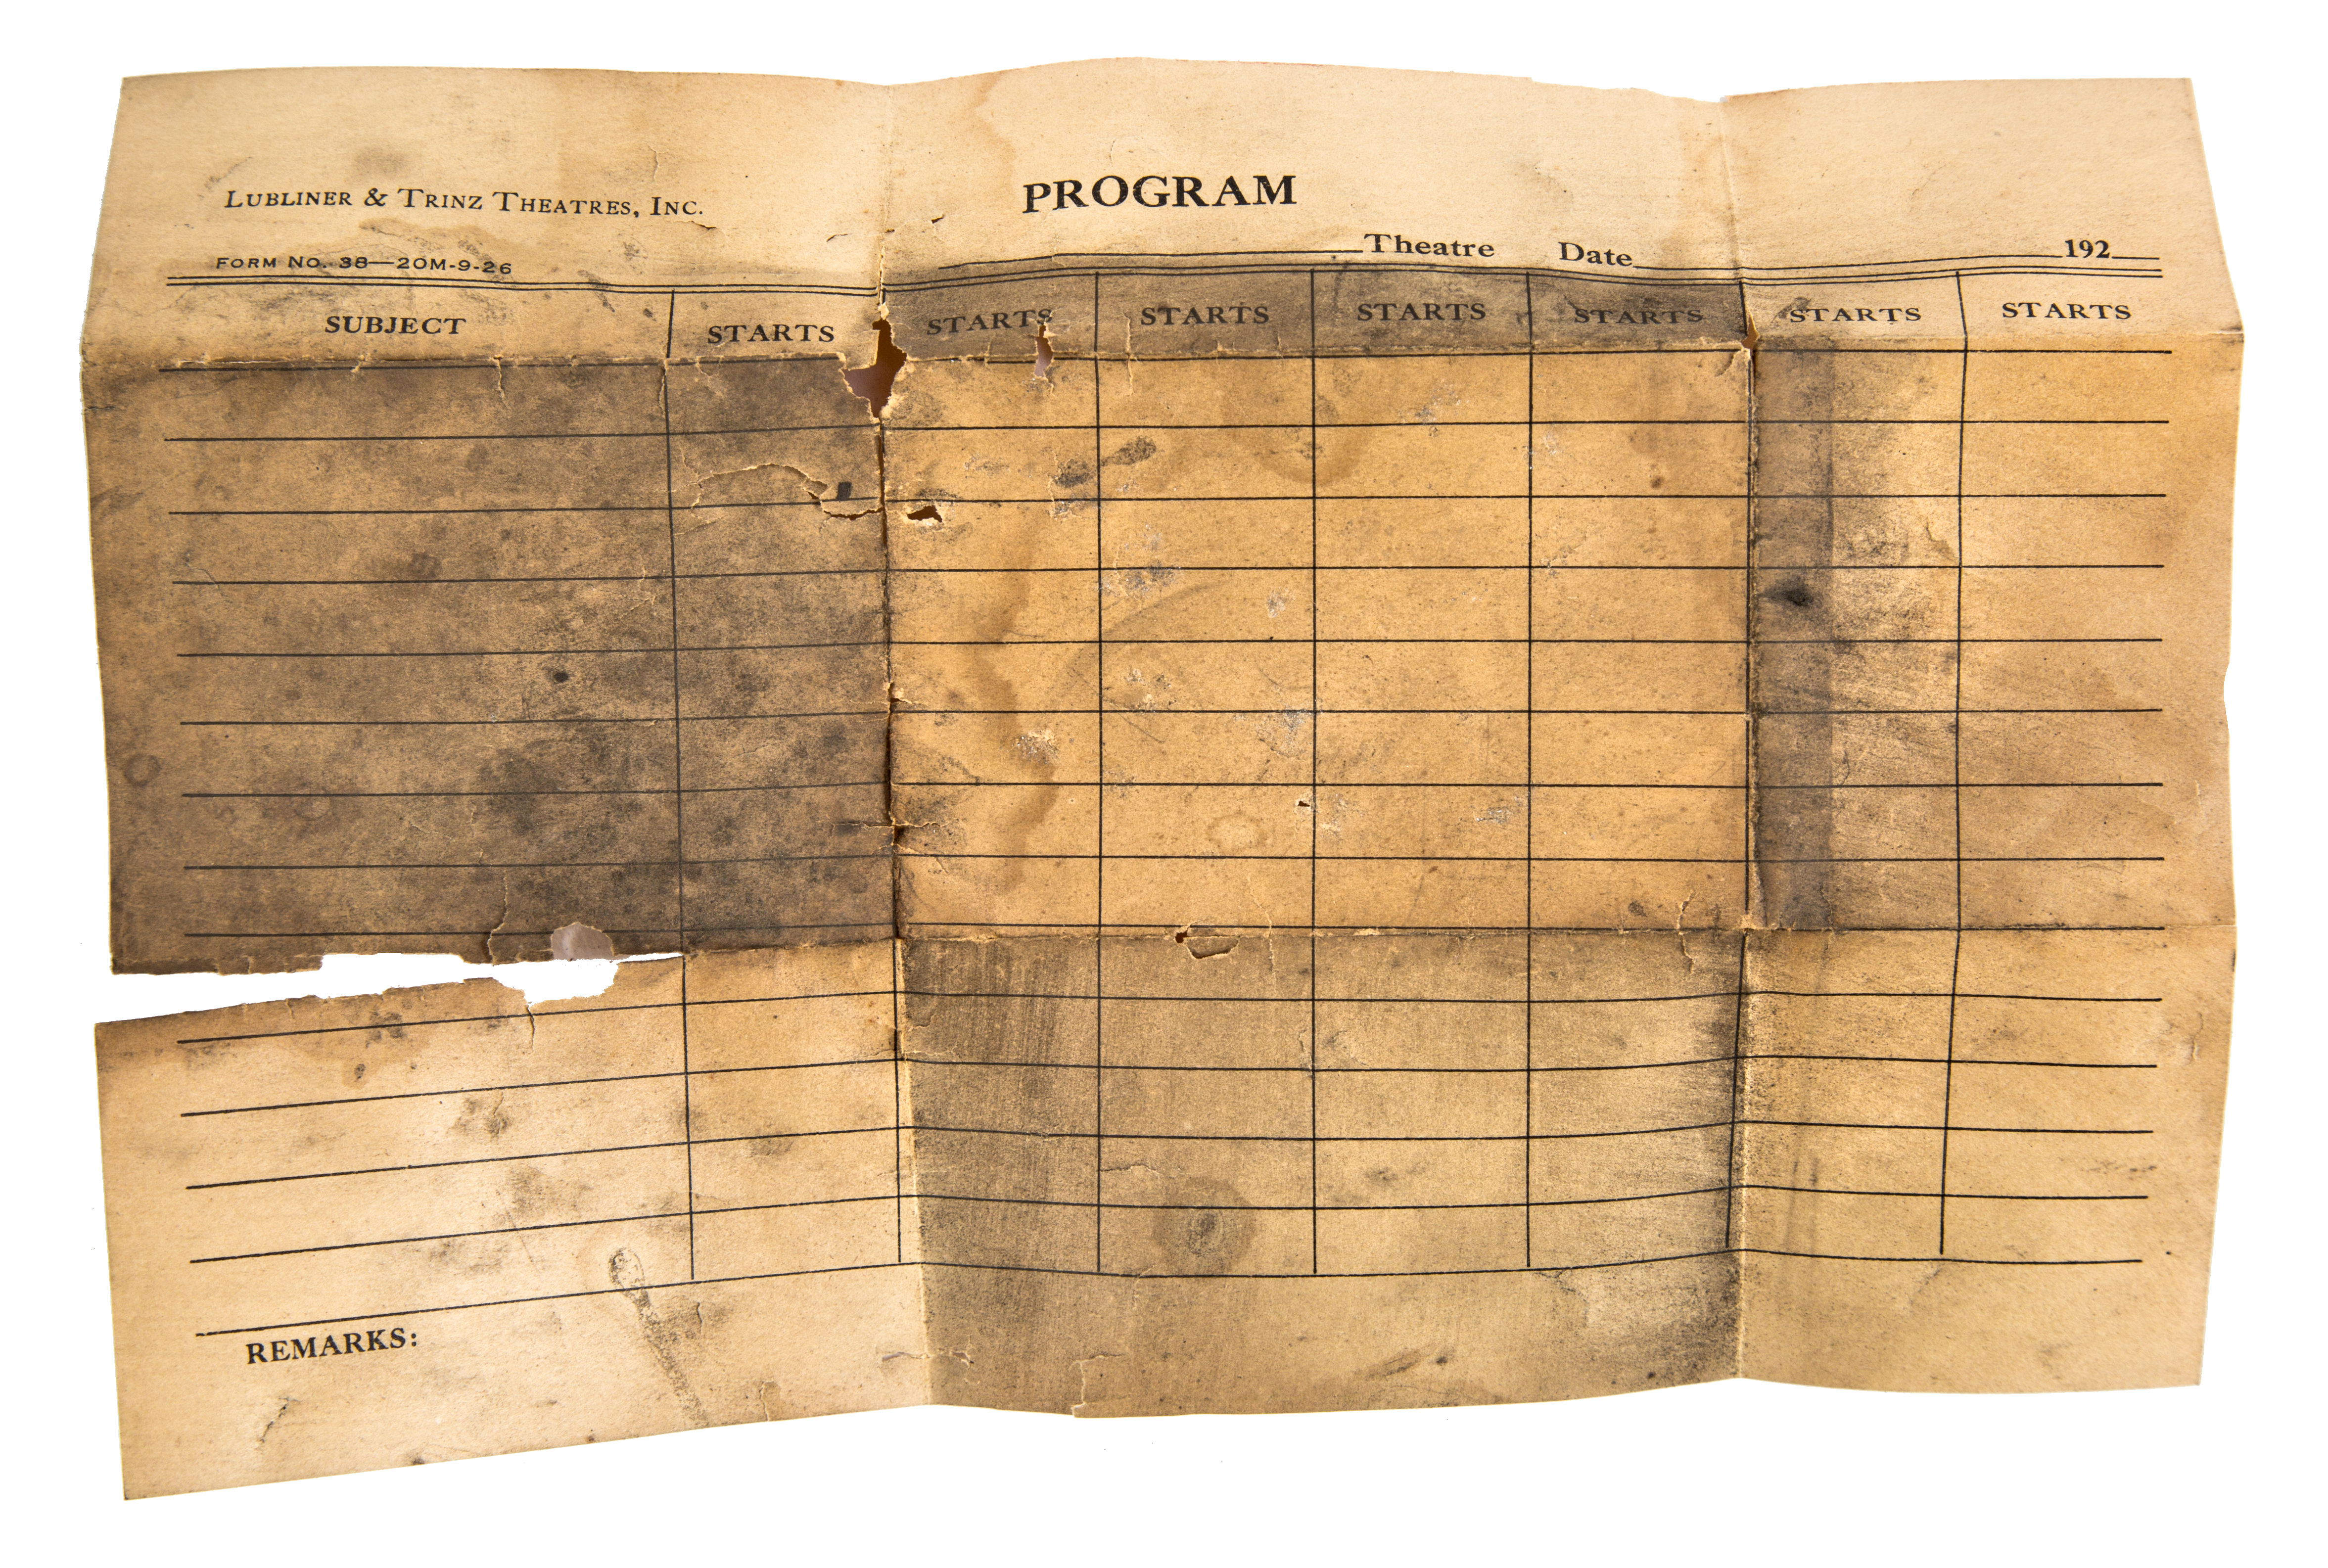 LUBLINER & TRINZ THEATRES, INC.
PROGRAM
FORM NO. 38—20M-9-26
Theatre Date 192
SUBJECT STARTS STARTS STARTS STARTS STARTS STARTS STARTS
REMARKS: